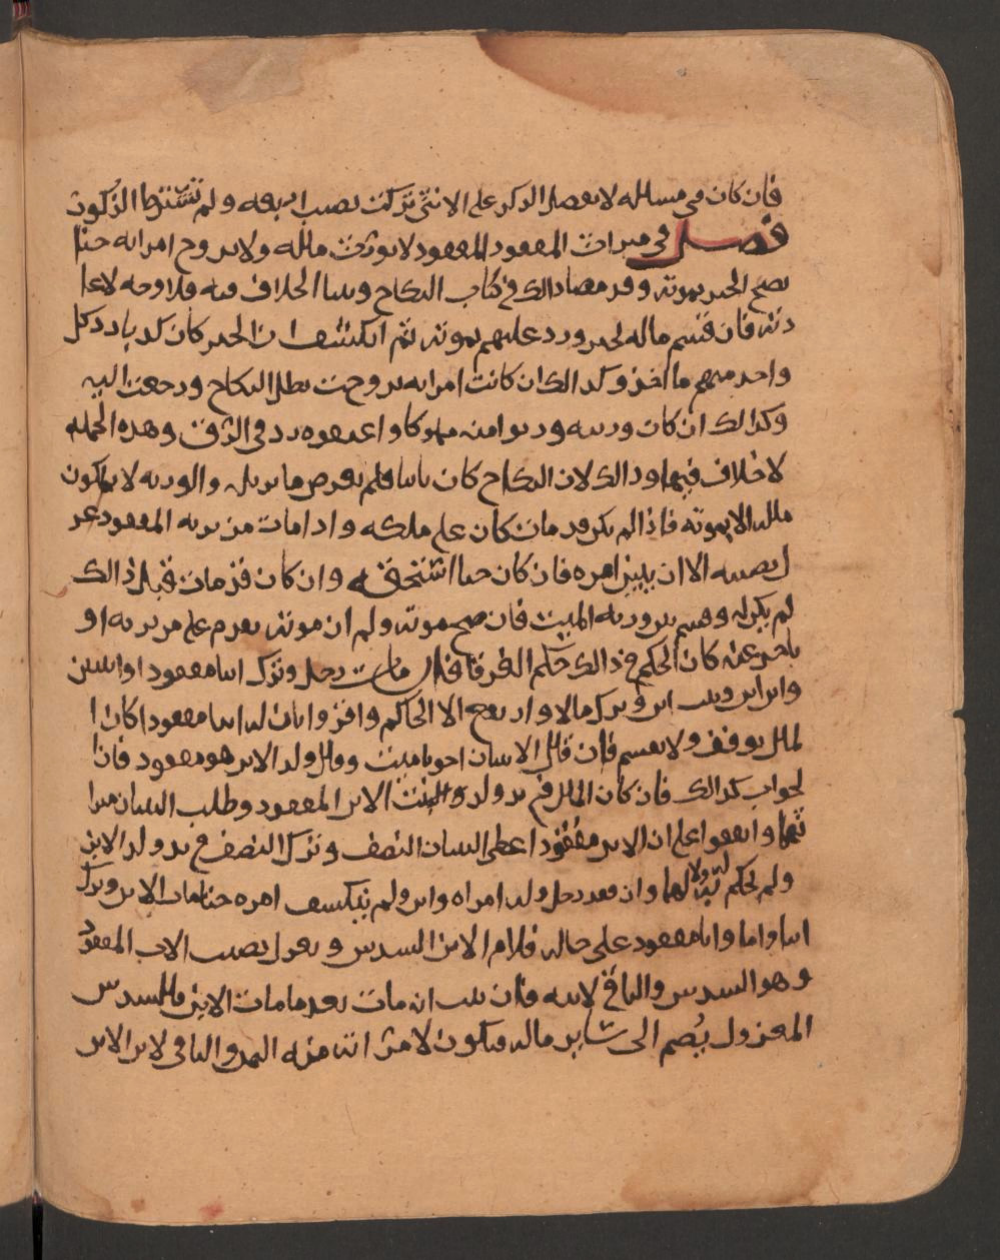 فان كان في مسئله لا يفضل الذكر على الانثى تركت نصيب اربعه ولم تشترط الذكوره
فصل في ميراث المفقود المفقود لا يورث ماله ولا يزوج امراته حتا
يصح الخبر بموته وقد مضا ذالك في كتاب النكاح وبينا الخلاف فيه فلا وجه لاعا
دته فان قسم ماله لخبر ورد عليهم بموته ثم انكشف ان الخبر كان كذبا رد كل
واحد منهم ما اخذ وكذالك ان كانت امراته تزوجت بطل النكاح ورجعت اليه
وكذالك ان كان ورثته ورثوا منه مملوكا واعتقوه رد في الرق وهذه الجمله
لا خلاف فيها وذالك لان النكاح كان ثابتا فلم يعرض ما يزيله والورثه لا يملكون
ماله الا بموته فاذا لم يكن قد مات كان على ملكه واذا مات من يرثه المفقود عز
ل نصيبه الا ان يتبين امره فان كان حيا استحقه وان كان قد مات قبل ذالك
لم يكن له وقسم بين ورثه الميت فان صح موته ولم ان موته تقدم على من يرثه او
تاخر عنه كان الحكم في ذالك حكم الغرقا فان مات رجل وترك ابنا مفقودا وابنتين
وابن ابن وبنت ابن وترك مالا وارتفع الا الحاكم واقروا بان له ابنا مفقودا كان ا
لمال يوقف ولا يقسم فان قال الابنتان اخونا ميت وقال ولد الابن هو مفقود فان ا
لجواب كذالك فان كان المال في يد ولد والبنت الابن المفقود وطلب البنتان ميرا
ثهما واتفقوا على ان الابن مفقودا اعطى البنتان النصف وترك النصف في يد ولد الابن
ولم يحكم له ولا لهما وان فقد رجل وله امراه وابن ولم ينكشف امره حتا مات الابن وترك
ابنا واما وابا مفقود على حاله فلام الابن السدس ويعزل نصيب الاب المفقود
وهو السدس والباقي لابنه فان ثبت انه مات بعد ما مات الابن فالسدس
المعزول يضم الى ساير ماله فيكون لامراته منه الثمن والباقي لابن الابن